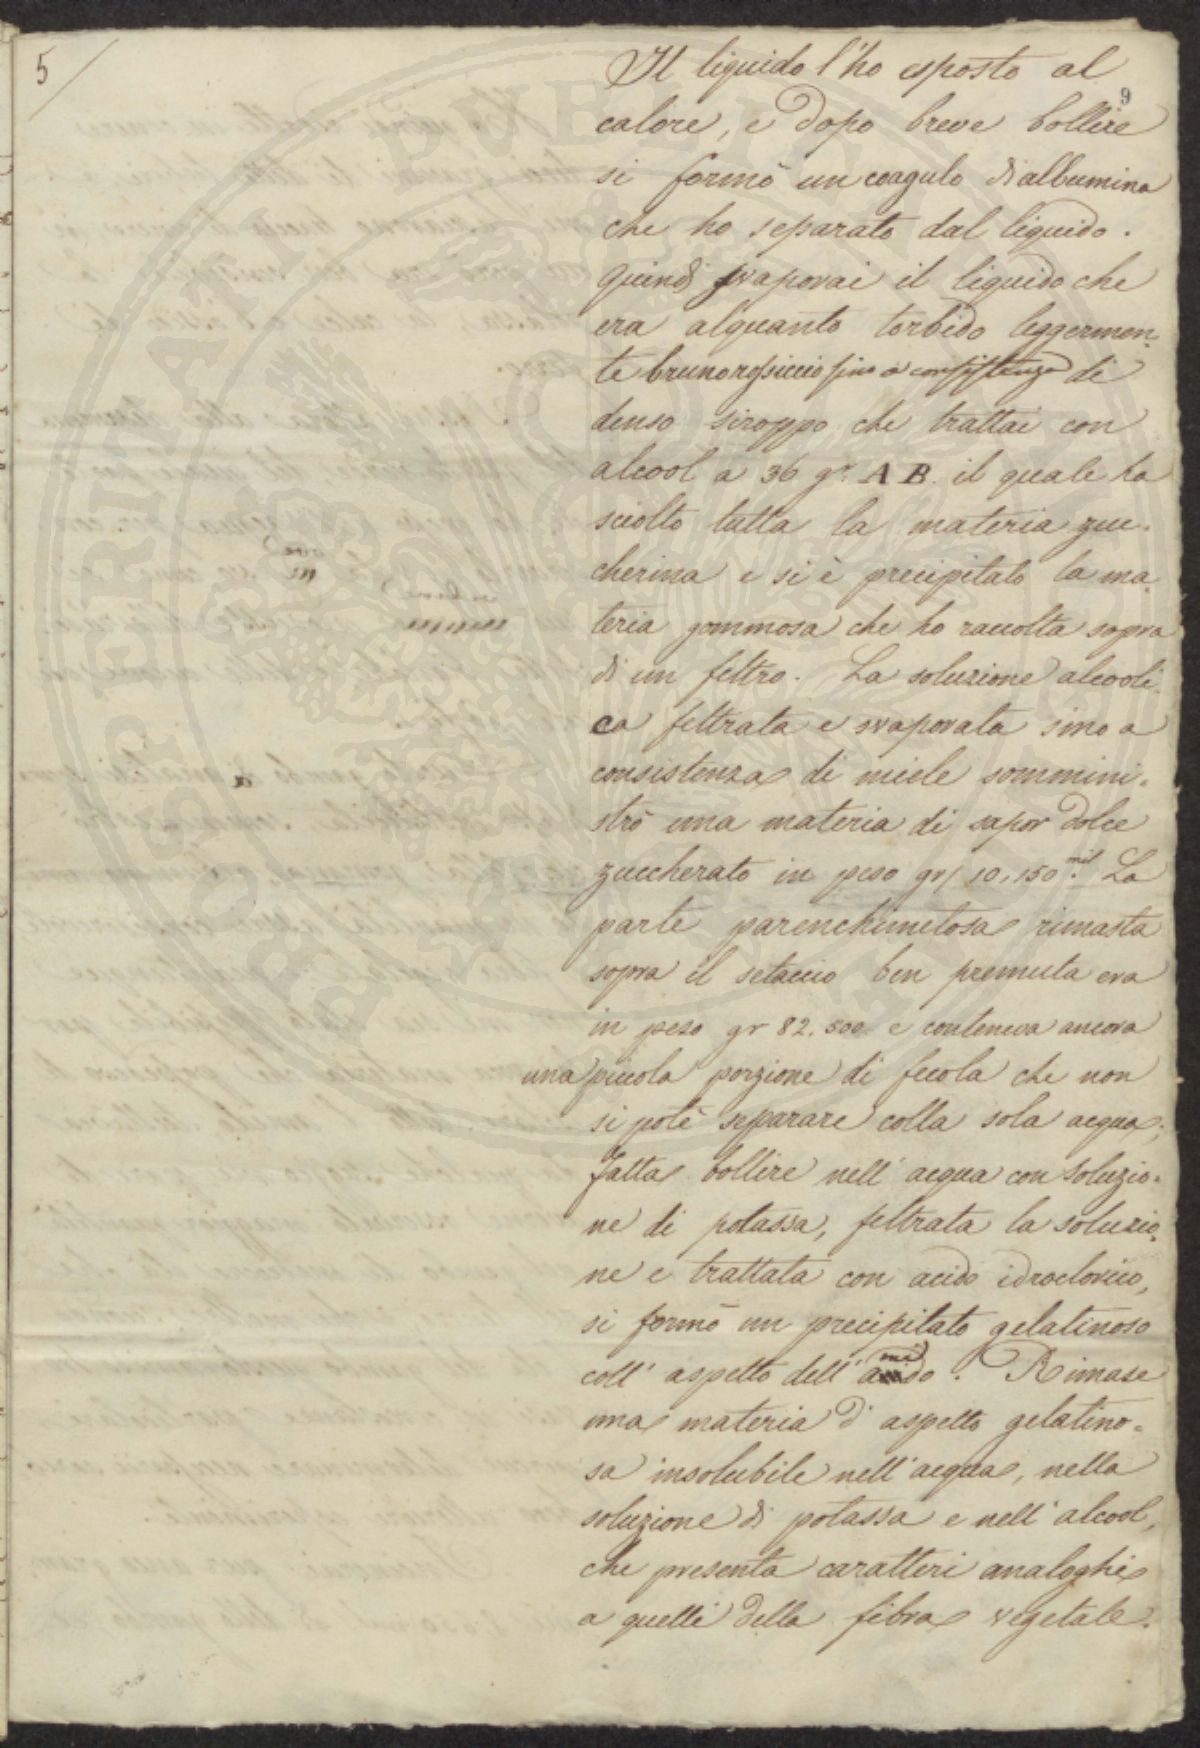 5/
9
Il liquido l'ho esposto al
calore, e dopo breve bollire
si formò un coagulo di albumina
che ho separato dal liquido.
Quindi svaporai il liquido che
era alquanto torbido leggermen-
te bruno rossiccio fino a consistenza di
denso siroppo che trattai con
alcool a 36 gr. A B. il quale ha
sciolto tutta la materia zuc-
cherina e si è precipitato la ma-
teria gommosa che ho raccolta sopra
di un feltro. La soluzione alcooli-
ca feltrata e svaporata sino a
consistenza di miele sommini-
strò una materia di sapor dolce
zuccherato in peso gr/ 10,150 mil. La
parte parenchimetosa rimasta
sopra il setaccio ben premuta era
in peso gr 82.500 e conteneva ancora
una piccola porzione di fecola che non
si potè separare colla sola acqua;
fatta bollire nell'acqua con soluzio-
ne di potassa, feltrata la soluzio-
ne e trattata con acido idroclorico,
si formò un precipitato gelatinoso
coll'aspetto dell'amido. Rimase
una materia d'aspetto gelatino-
sa insolubile nell'acqua, nella
soluzione di potassa e nell'alcool,
che presenta caratteri analoghi
a quelli della fibra vegetale.